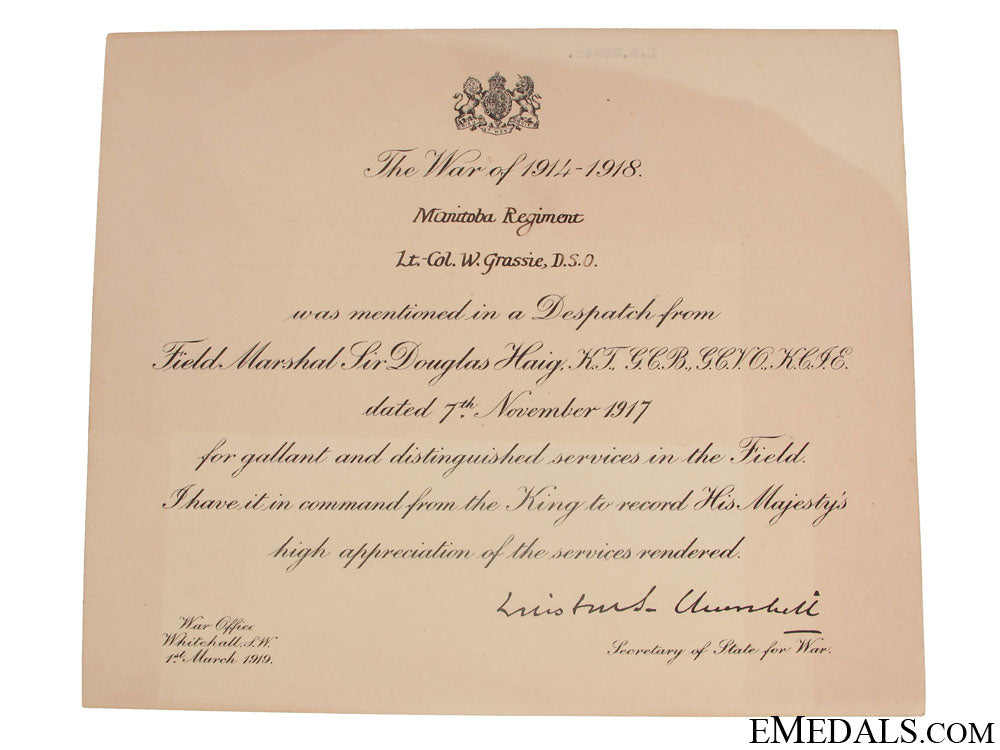 The War of 1914-1918.
Manitoba Regiment
Lt.-Col. W. Grassie, D.S.O.
was mentioned in a Despatch from
Field Marshal Sir Douglas Haig, K.T., G.C.B., G.C.V.O., K.C.I.E.
dated 7th November 1917
for gallant and distinguished services in the Field.
I have it in command from the King to record His Majesty's
high appreciation of the services rendered.
Winston S. Churchill
War Office
Whitehall, S.W.
1st March 1919.
Secretary of State for War.
EMEDALS.COM